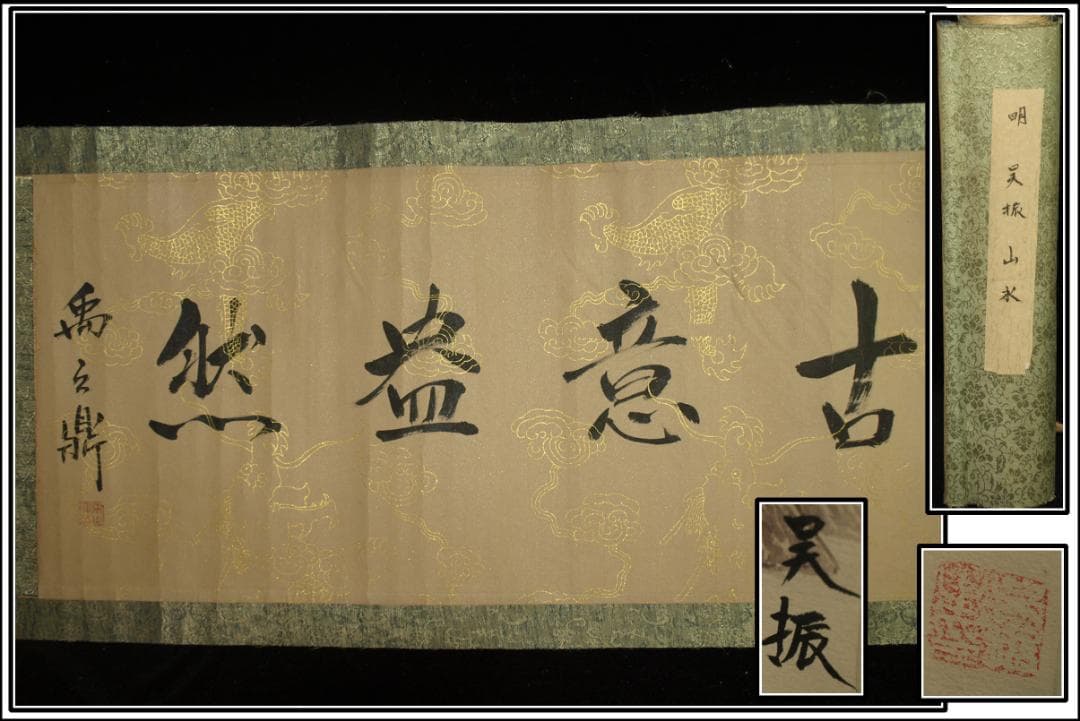 古意盎然
禹之鼎
明 吴振山水
吴振